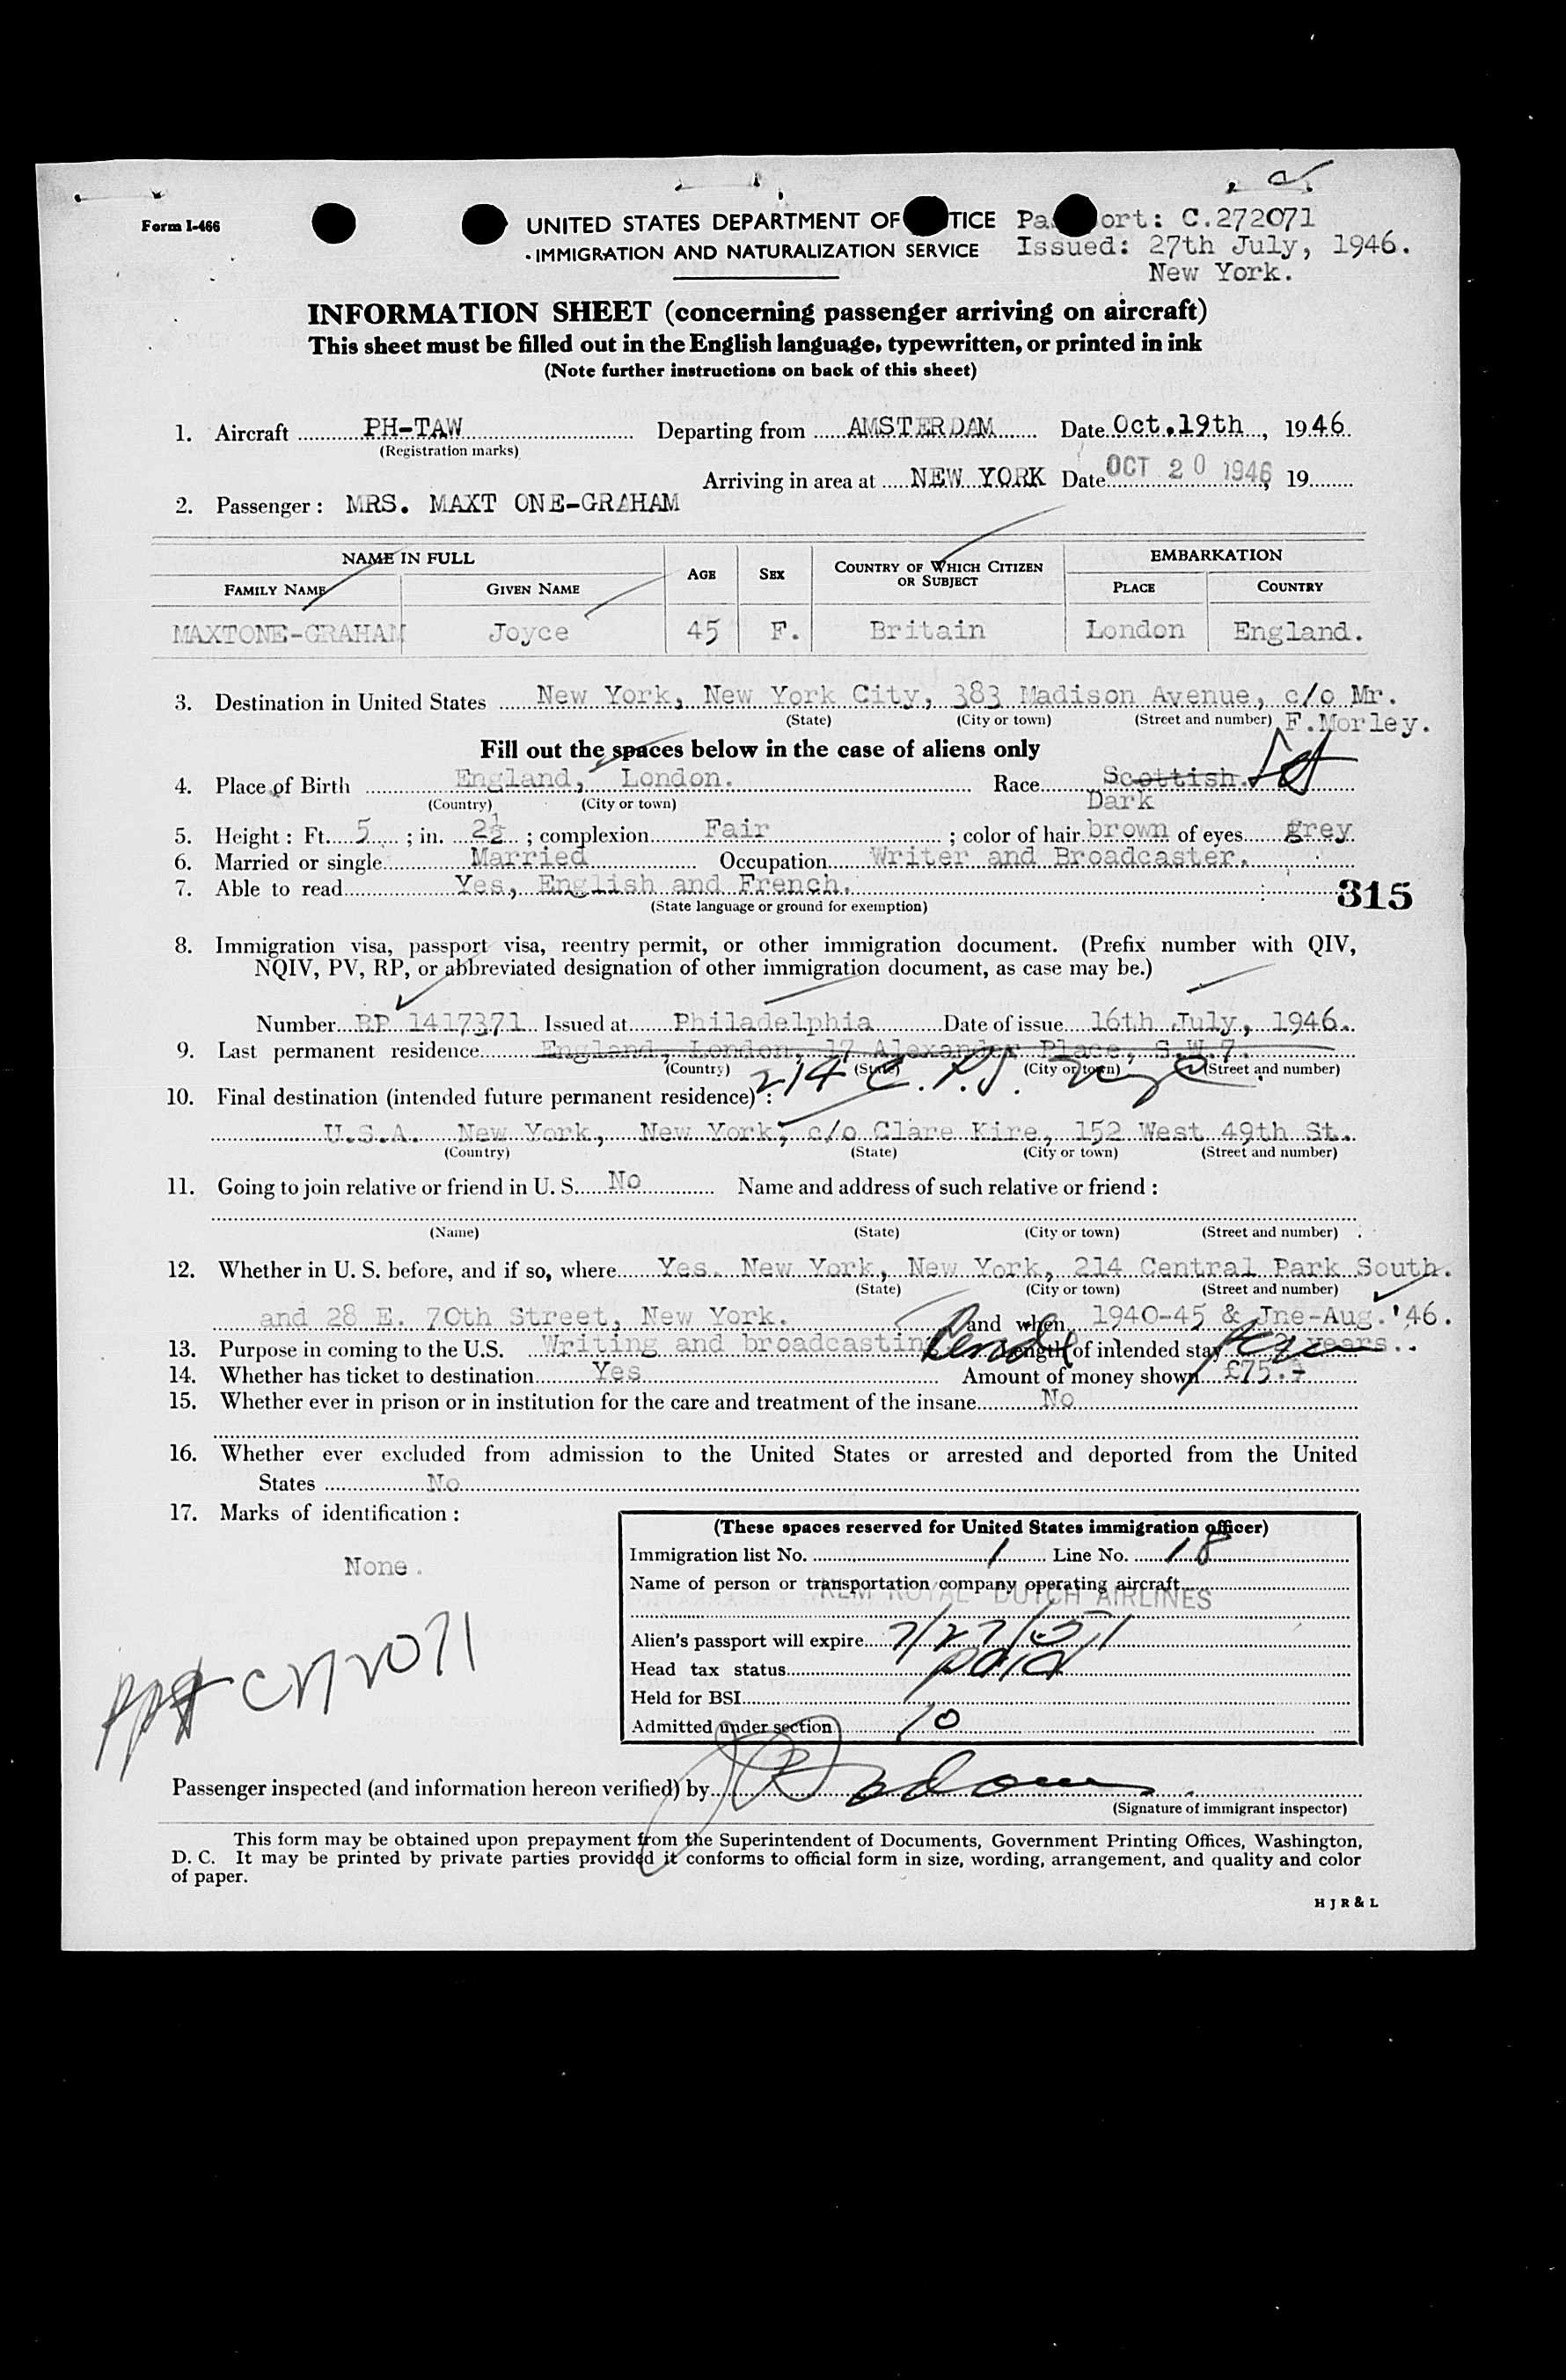 Form I-466
UNITED STATES DEPARTMENT OF TICE Pa ort: C.272071
IMMIGRATION AND NATURALIZATION SERVICE Issued: 27th July, 1946.
New York.
INFORMATION SHEET (concerning passenger arriving on aircraft)
This sheet must be filled out in the English language, typewritten, or printed in ink
(Note further instructions on back of this sheet)
1. Aircraft PH-TAW Departing from AMSTERDAM Date Oct.19th, 1946.
(Registration marks)
Arriving in area at NEW YORK Date OCT 20 1946, 19
2. Passenger: MRS. MAXT ONE-GRAHAM
NAME IN FULL AGE SEX COUNTRY OF WHICH CITIZEN OR SUBJECT EMBARKATION
FAMILY NAME GIVEN NAME PLACE COUNTRY
MAXTONE-GRAHAM Joyce 45 F. Britain London England.
3. Destination in United States New York, New York City, 383 Madison Avenue, c/o Mr.
(State) (City or town) (Street and number) F.Morley.
Fill out the spaces below in the case of aliens only
4. Place of Birth England, London. Race Scottish.
(Country) (City or town) Dark
5. Height: Ft. 5; in. 2½; complexion Fair; color of hair brown of eyes grey
6. Married or single Married Occupation Writer and Broadcaster.
7. Able to read Yes, English and French.
(State language or ground for exemption) 315
8. Immigration visa, passport visa, reentry permit, or other immigration document. (Prefix number with QIV,
NQIV, PV, RP, or abbreviated designation of other immigration document, as case may be.)
Number RP 1417371 Issued at Philadelphia Date of issue 16th July, 1946.
9. Last permanent residence England, London, 17 Alexander Place, S.W.7.
(Country) (State) (City or town) (Street and number)
214 C. P.S. NYC
10. Final destination (intended future permanent residence):
U.S.A. New York, New York, c/o Clare Kire, 152 West 49th St.
(Country) (State) (City or town) (Street and number)
11. Going to join relative or friend in U. S. No Name and address of such relative or friend:
(Name) (State) (City or town) (Street and number)
12. Whether in U. S. before, and if so, where Yes. New York, New York, 214 Central Park South.
(State) (City or town) (Street and number)
and 28 E. 70th Street, New York. and when 1940-45 & Jne-Aug.'46.
13. Purpose in coming to the U.S. Writing and broadcasting Length of intended stay 2 years.
14. Whether has ticket to destination Yes Amount of money shown £75.
15. Whether ever in prison or in institution for the care and treatment of the insane No
16. Whether ever excluded from admission to the United States or arrested and deported from the United
States No
17. Marks of identification:
None.
(These spaces reserved for United States immigration officer)
Immigration list No. 1 Line No. 18
Name of person or transportation company operating aircraft
KLM ROYAL DUTCH AIRLINES
Alien's passport will expire 7/27/51
Head tax status paid
Held for BSI
Admitted under section 10
ppt C272071
Passenger inspected (and information hereon verified) by
(Signature of immigrant inspector)
This form may be obtained upon prepayment from the Superintendent of Documents, Government Printing Offices, Washington,
D. C. It may be printed by private parties provided it conforms to official form in size, wording, arrangement, and quality and color
of paper.
H J R & L